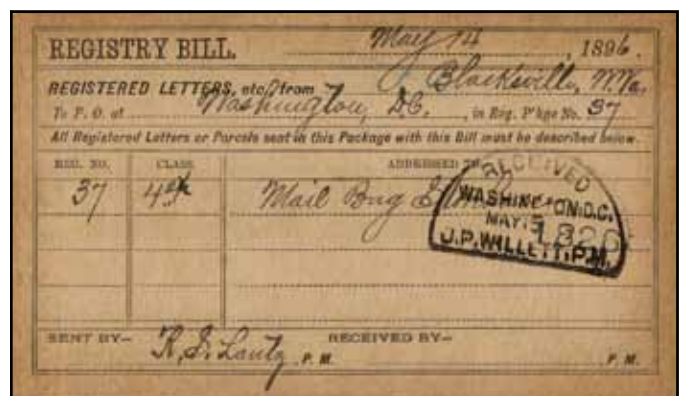 REGISTRY BILL. May 14, 1896.
REGISTERED LETTERS, etc., from Blacksville, W.Va.
To P. O. at Washington, D.C., in Reg. P'kge No. 37
All Registered Letters or Parcels sent in this Package with this Bill must be described below.
REG. NO. CLASS. ADDRESSED TO
37 4th Mail Bag
RECEIVED
WASHINGTON, D.C.
MAY 15
J.P. WILLETT, P.M.
SENT BY— R. S. Lantz P. M. RECEIVED BY— P. M.